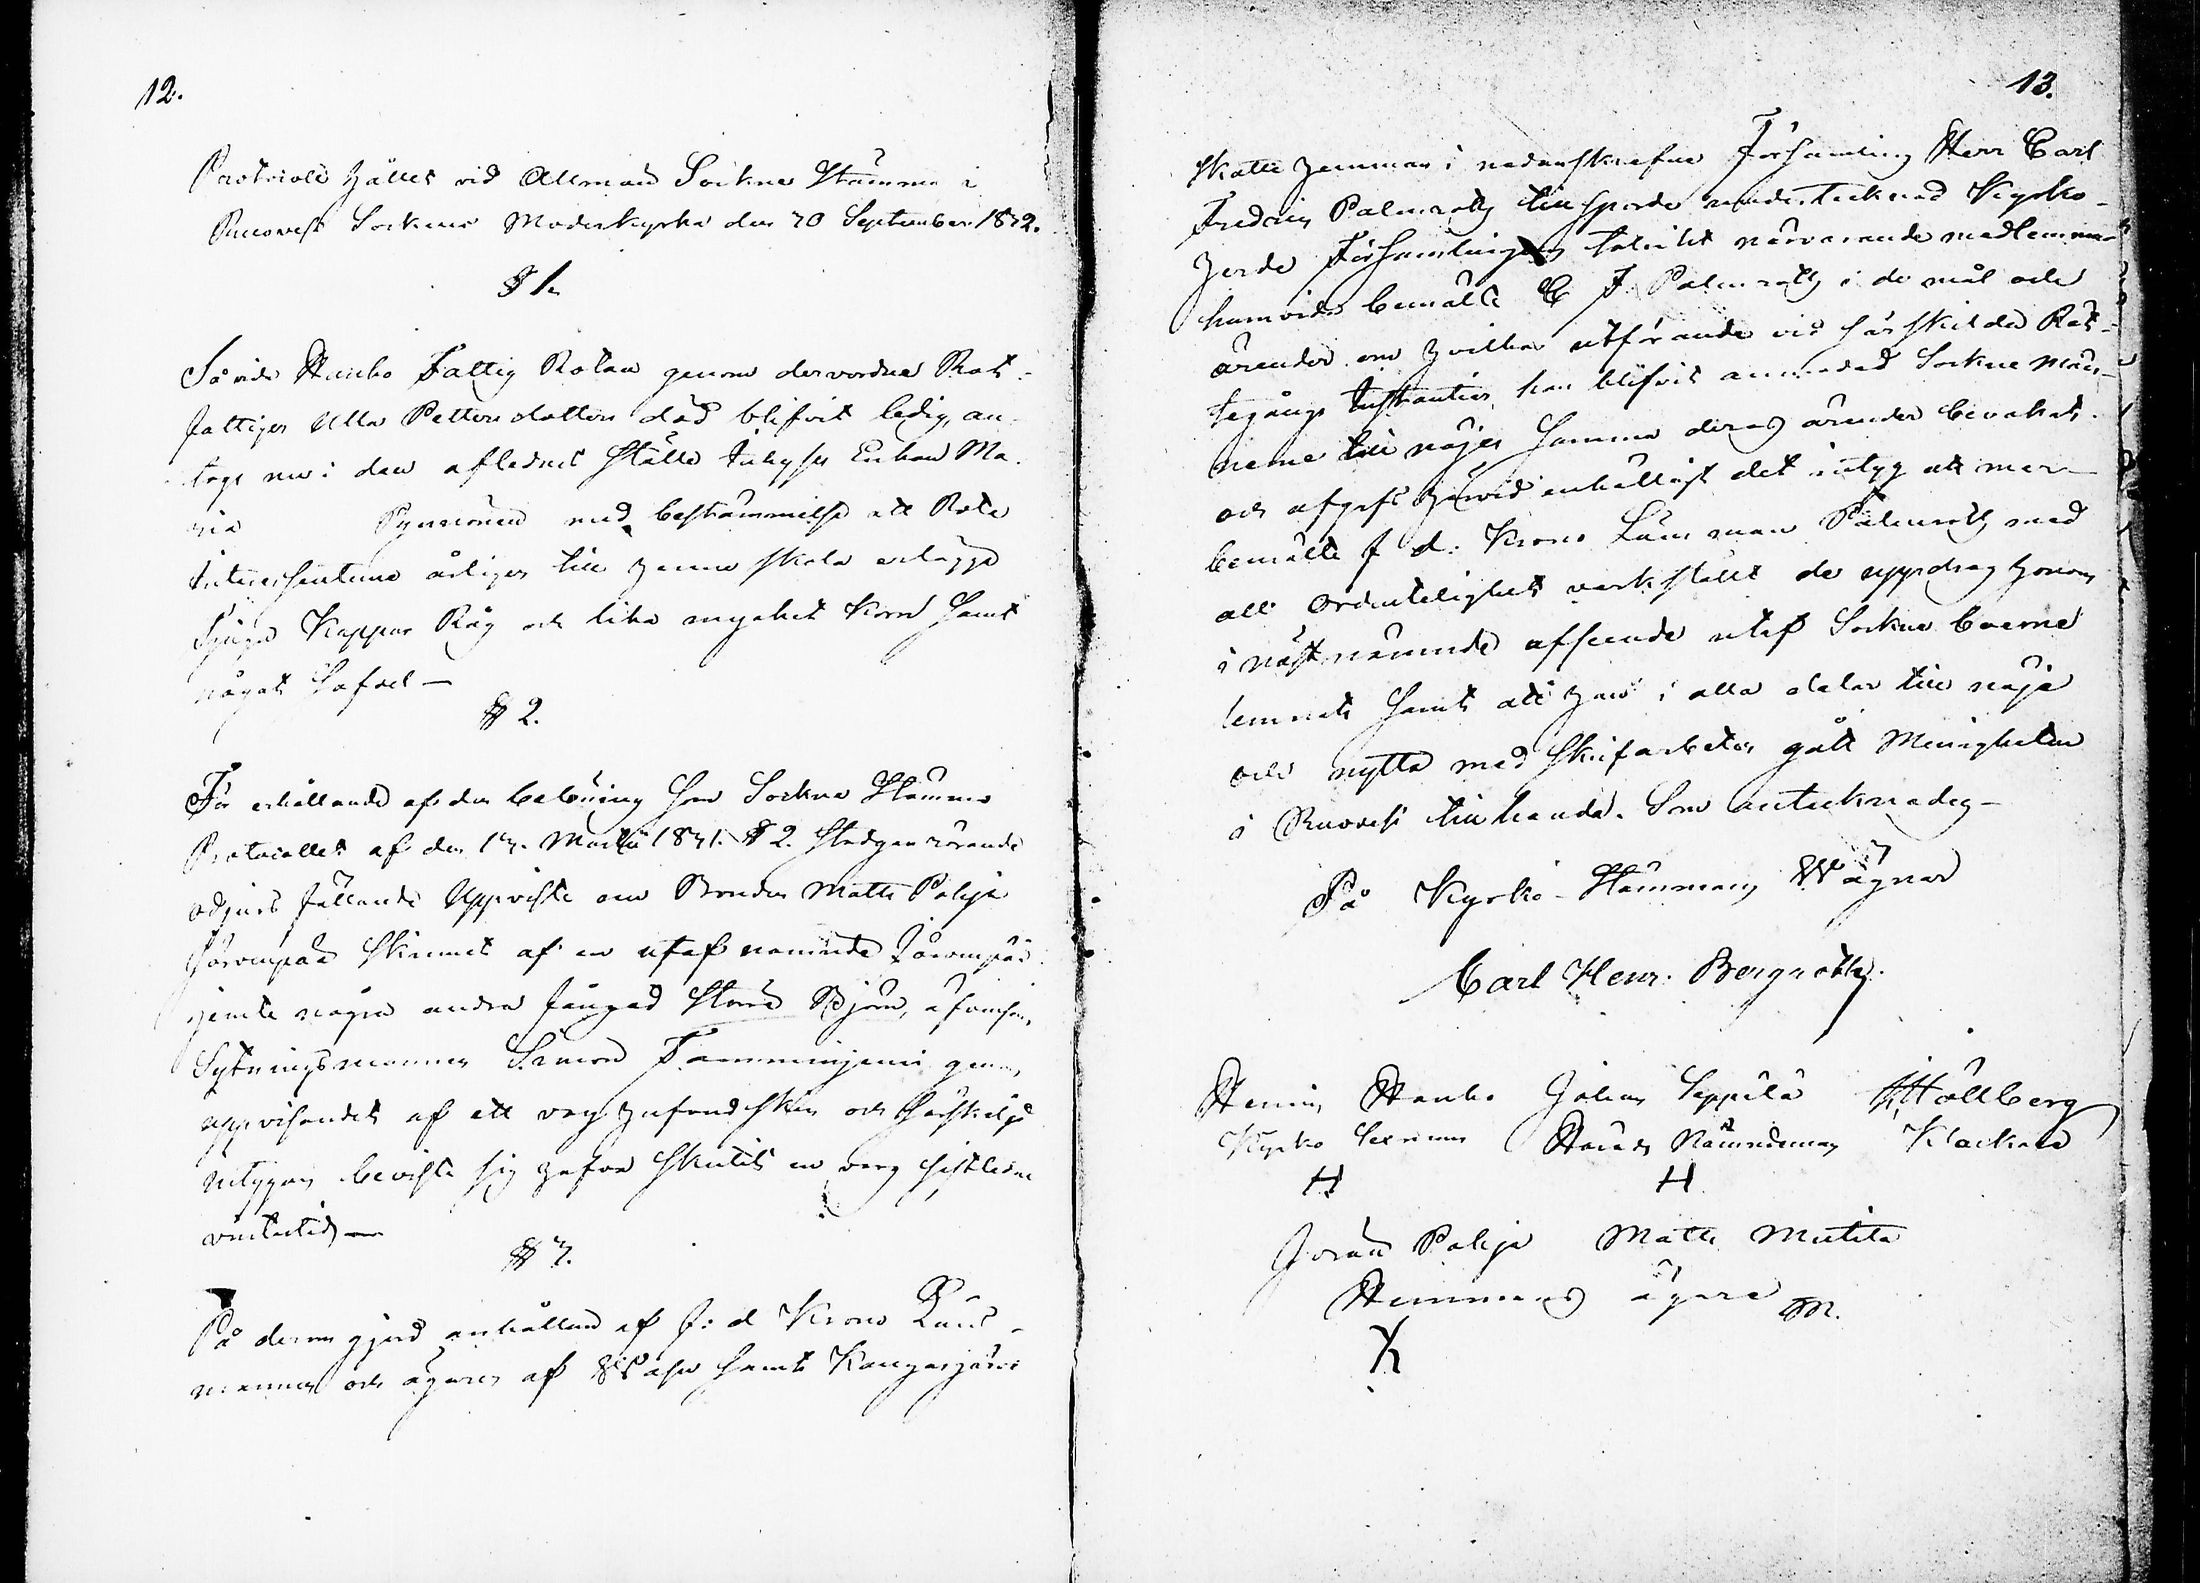 12.
Protocoll hållet vid Allmän Sockne Stämma i
Ruovesi Sockens Moderkyrka den 30 September 1832.
§ 1.
Så vida Hanho Fattig Rotan genom dervordne Rot-
fattigen Ulla Pettersdotters död blifvit ledig, an-
togs nu i den aflednes ställe Inhyses Enkan Ma-
ria Pynnönen med bestämmelse att Rote
Interessenterne årligen till henne skola erlägga
Sjuga Kappar Råg och lika mycket Korn samt
något Sofvel —
§ 2.
För erhållande af den belöning som Sockne Stämmo
Protocollet af den 13. Martii 1831. § 2. stadgar rörande
odjurs fällande uppviste nu Bonden Matts Pohja
skinnet af en utaf nämnde
jemte några andra fångad större Björn,
Sytningsmannen Simon Tamminjemi genom
uppvisandet af ett varg hufvudskin och särskilja
intygan beviste sig hafva skutit en varg sistledne
vintertid —
§ 3.
På derom gjord anhållan af f: d Krono Läns-
mannen och ägaren af samt Kangasjärvi
13.
skatte hemman i nedanskrefne Församling Herr Carl
Fredric Palmroth tillsporde undertecknad Kyrko-
herde Församlingens talrikt närvarande medlemmar
huruvida bemälte C F. Palmroth i de mål och
ärender om hvilkas utförande vid särskilda Rät-
tegångs Instantier han blifvit anmodad Sockne Män-
nerne till nöjes samma deras ärender bevakat.
och afgafs härvid enhälligt det intyg att mer-
bemälte f d: Krono Länsman Palmroth med
all Ordentelighet verkställt de uppdrag honom
i nästnämnde afseende utaf Sockne boerne
lemnats samt att han i alla delar till nöje
och nytta med skrifarbeten gått Menigheten
i Ruovesi tillhanda. Som antecknades —
På Kyrko-Stämmans Wägnar
Carl Henr. Bergroth.
Henric Hanho Johan Seppälä Hällberg
Kyrko Sexman Härads Nämndeman Klockare
H H
Jöran Pohja Matts Mutila
Hemmans ägare
M.
X